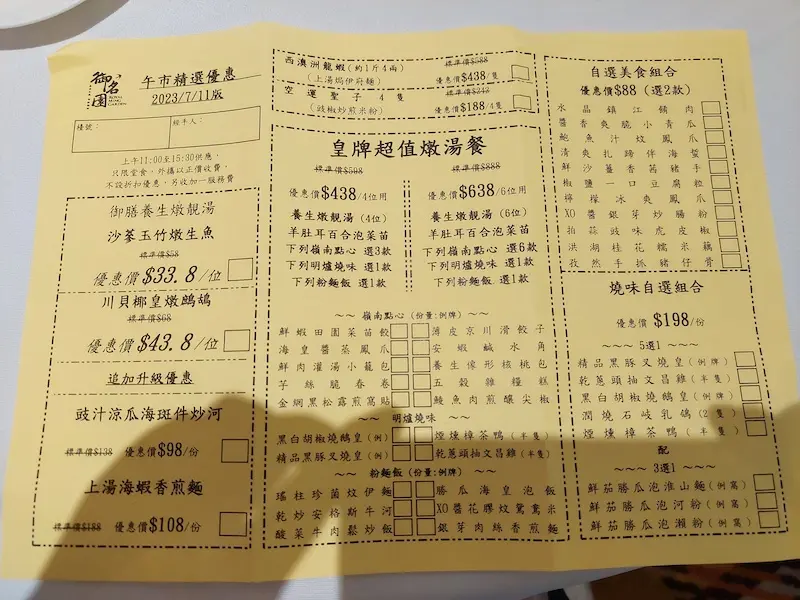 御名園
ROYAL MING GARDEN
午市精選優惠
2023/7/11版
檯號：
經手人：
上午11:00至15:30供應，
只限堂食，外攜以正價收費，
不設折扣優惠，另收加一服務費
御膳養生燉靚湯
沙葠玉竹燉生魚
標準價$58
優惠價$33.8/位
川貝椰皇燉鷓鴣
標準價$68
優惠價$43.8/位
追加升級優惠
豉汁涼瓜海斑件炒河
標準價$138 優惠價$98/份
上湯海蝦香煎麵
標準價$188 優惠價$108/份
西澳洲龍蝦(約1斤4兩)
標準價$588
(上湯焗伊府麵)
優惠價$438/隻
空運聖子4隻
標準價$242
(豉椒炒煎米粉)
優惠價$188/4隻
皇牌超值燉湯餐
標準價$598
優惠價$438/4位用
養生燉靚湯(4位)
羊肚耳百合泡菜苗
下列嶺南點心 選3款
下列明爐燒味 選1款
下列粉麵飯 選1款
標準價$888
優惠價$638/6位用
養生燉靚湯(6位)
羊肚耳百合泡菜苗
下列嶺南點心 選6款
下列明爐燒味 選1款
下列粉麵飯 選1款
~~ 嶺南點心 (份量:例牌) ~~
鮮蝦田園菜苗餃
薄皮京川滑餃子
海皇醬蒸鳳爪
安蝦鹹水角
鮮肉灌湯小籠包
養生像形核桃包
芋絲脆春卷
五穀雜糧糕
金網黑松露煎窩貼
鰻魚肉煎釀尖椒
~~ 明爐燒味 ~~
黑白胡椒燒鴿皇(例)
煙燻樟茶鴨(半隻)
精品黑豚叉燒皇(例)
乾蔥頭抽文昌雞(半隻)
~~ 粉麵飯 (份量:例牌) ~~
瑤柱珍菌炆伊麵
勝瓜海皇泡飯
乾炒安格斯牛河
XO醬花膠炆鴛鴦米
酸菜牛肉鬆炒飯
銀芽肉絲香煎麵
自選美食組合
優惠價$88 (選2款)
水晶鎮江餚肉
醬香爽脆小青瓜
鮑魚汁炆鳳爪
清爽扎蹄伴海蜇
鮮沙薑香茜豬手
椒鹽一口豆腐粒
檸檬冰爽鳳爪
XO醬銀芽炒腸粉
拍蒜豉味虎皮椒
洪湖桂花糯米藕
孜然手抓豬仔骨
燒味自選組合
優惠價 $198/份
~~~~ 5選1 ~~~~
精品黑豚叉燒皇(例牌)
乾蔥頭抽文昌雞(半隻)
黑白胡椒燒鴿皇(例牌)
潤燒石岐乳鴿(2隻)
煙燻樟茶鴨(半隻)
配
~~~~ 3選1 ~~~~
鮮茄勝瓜泡淮山麵(例窩)
鮮茄勝瓜泡河粉(例窩)
鮮茄勝瓜泡瀨粉(例窩)